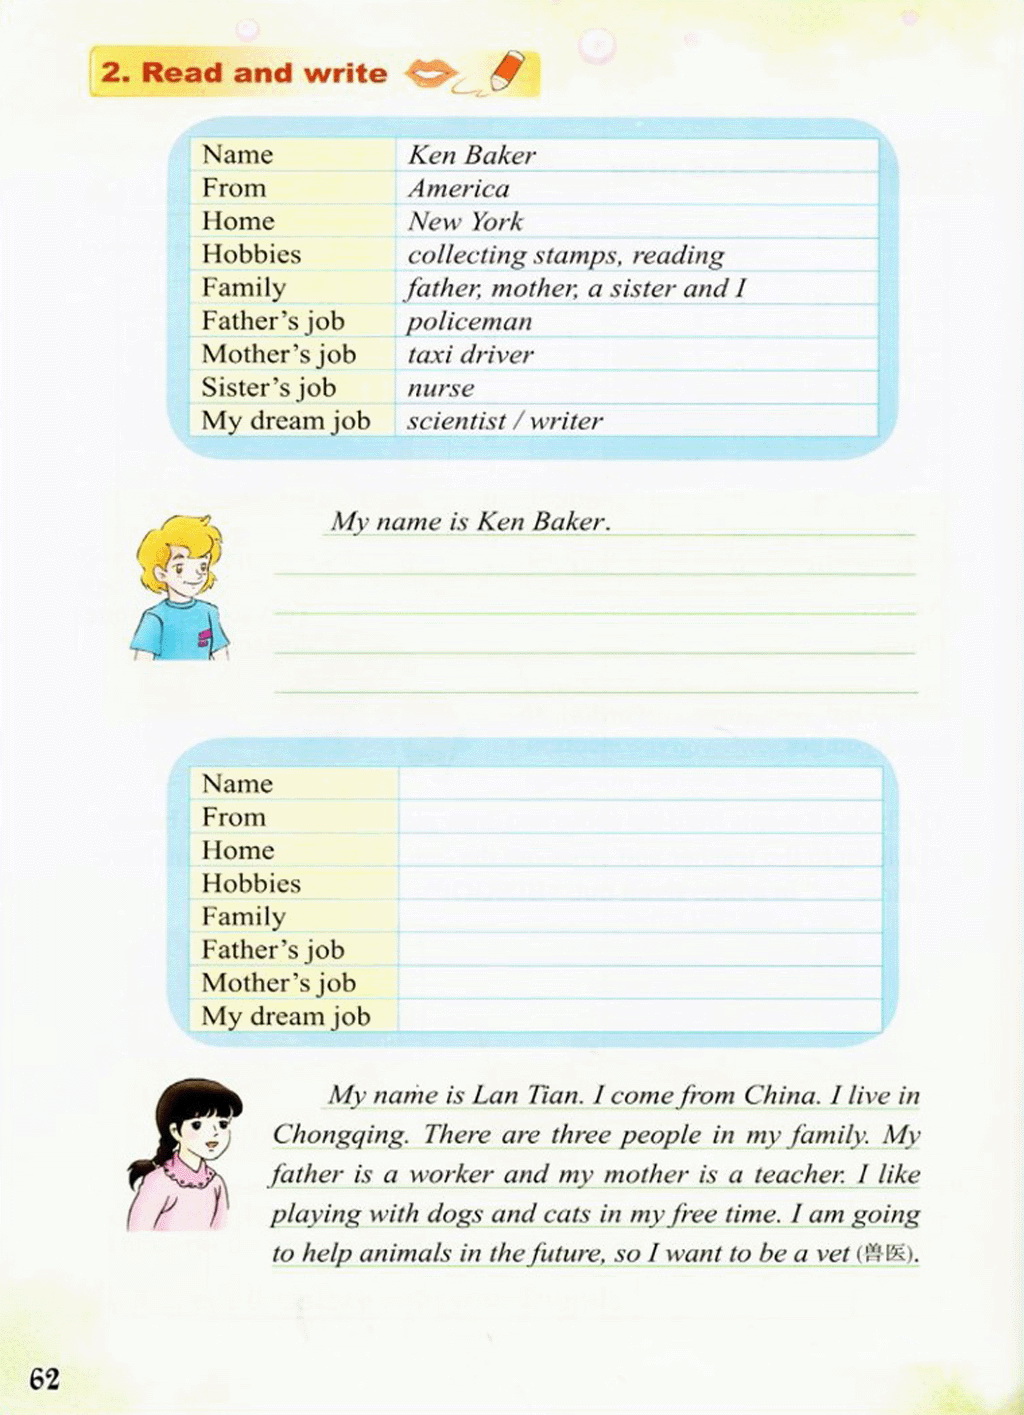 2. Read and write
Name Ken Baker
From America
Home New York
Hobbies collecting stamps, reading
Family father, mother, a sister and I
Father's job policeman
Mother's job taxi driver
Sister's job nurse
My dream job scientist / writer
My name is Ken Baker.
Name
From
Home
Hobbies
Family
Father's job
Mother's job
My dream job
My name is Lan Tian. I come from China. I live in
Chongqing. There are three people in my family. My
father is a worker and my mother is a teacher. I like
playing with dogs and cats in my free time. I am going
to help animals in the future, so I want to be a vet (兽医).
62